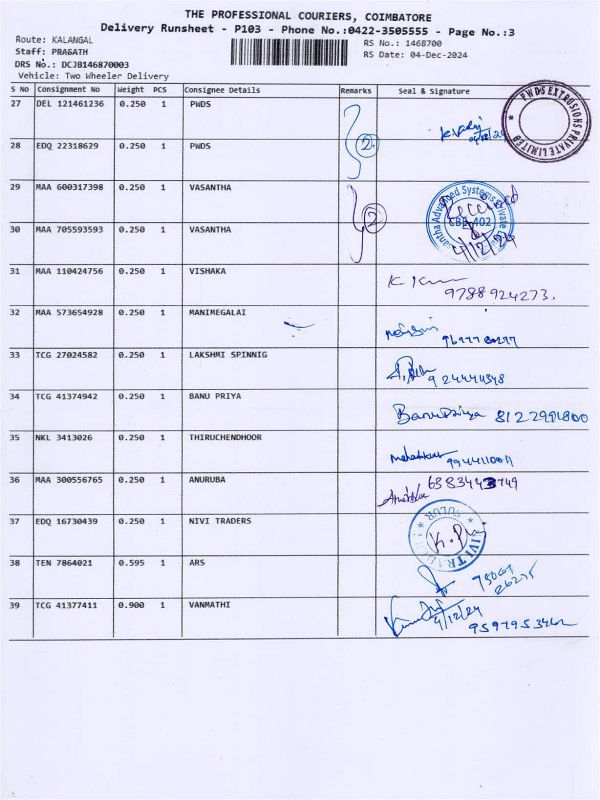 THE PROFESSIONAL COURIERS, COIMBATORE
Delivery Runsheet - P103 - Phone No.:0422-3505555 - Page No.:3
Route: KALANGAL
RS No.: 1468700
Staff: PRAGATH
RS Date: 04-Dec-2024
DRS No.: DCJB146870003
Vehicle: Two Wheeler Delivery
S No Consignment No Weight PCS Consignee Details Remarks Seal & Signature
27 DEL 121461236 0.250 1 PWDS
PWDS EXTRUSIONS PRIVATE LIMITED
28 EDQ 22318629 0.250 1 PWDS 2
29 MAA 600317398 0.250 1 VASANTHA
2 Received
Advanced Systems Private
CBE-402
4/12/24
30 MAA 705593593 0.250 1 VASANTHA
31 MAA 110424756 0.250 1 VISHAKA
9788924273.
32 MAA 573654928 0.250 1 MANIMEGALAI
33 TCG 27024582 0.250 1 LAKSHMI SPINNIG
34 TCG 41374942 0.250 1 BANU PRIYA
Banu Priya
35 NKL 3413026 0.250 1 THIRUCHENDHOOR
36 MAA 300556765 0.250 1 ANURUBA
37 EDQ 16730439 0.250 1 NIVI TRADERS
SULUR
38 TEN 7864021 0.595 1 ARS
39 TCG 41377411 0.900 1 VANMATHI
4/12/24